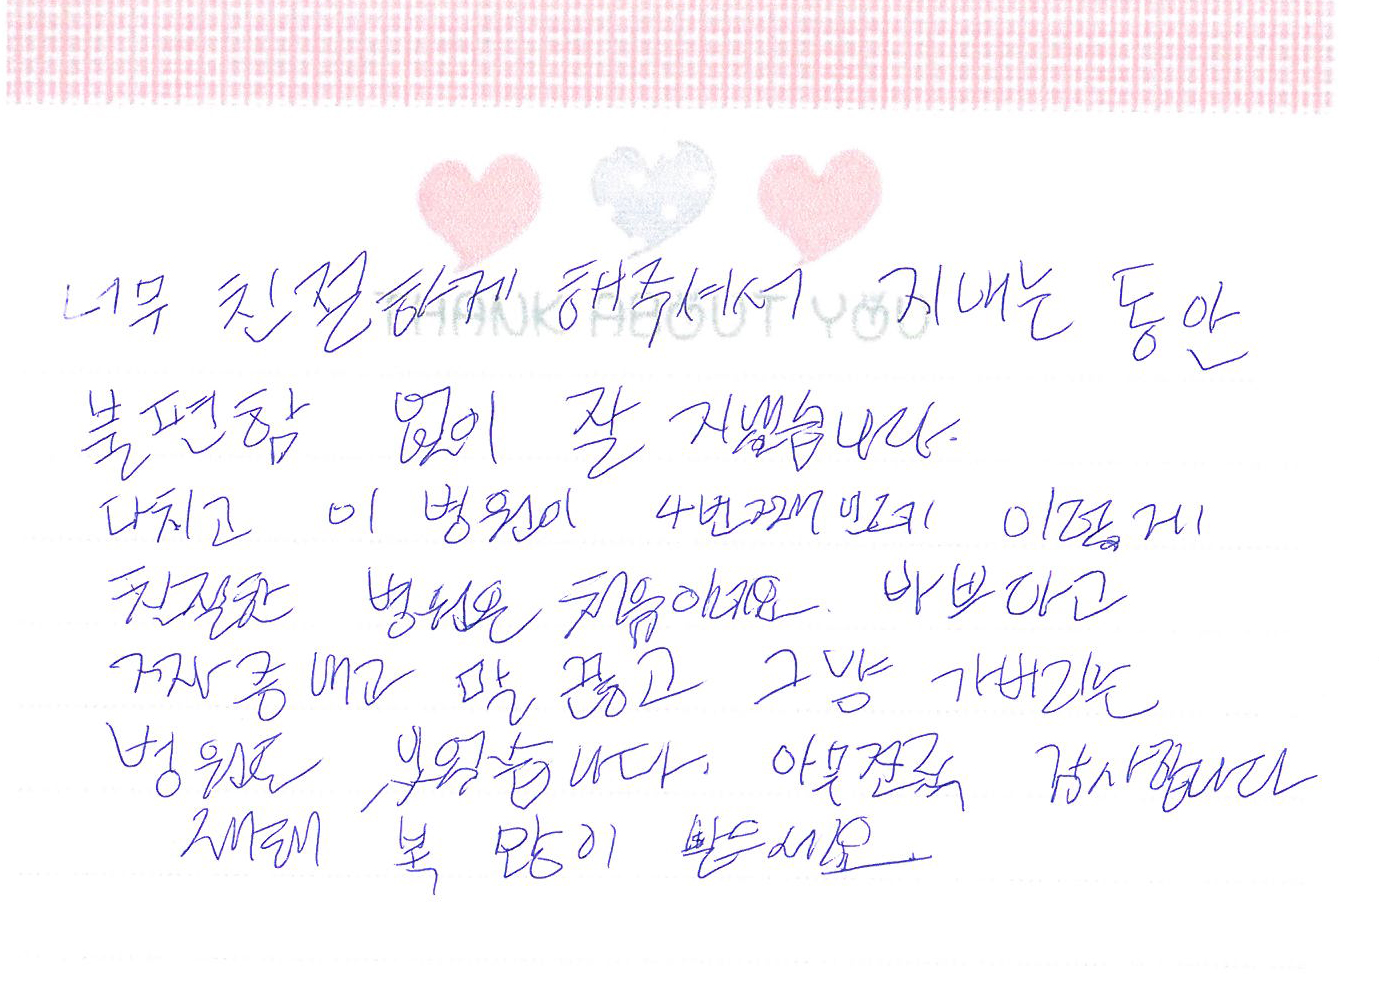 THANK ABOUT YOU
너무 친절하게 해주셔서 지내는 동안
불편함 없이 잘 지냈습니다.
다치고 이 병원이 4번째 인데 이렇게
친절한 병원은 처음이네요. 바쁘다고
짜증내고 말 끊고 그냥 가버리는
병원도 있었습니다. 아무쪼록 감사합니다
새해 복 많이 받으세요.